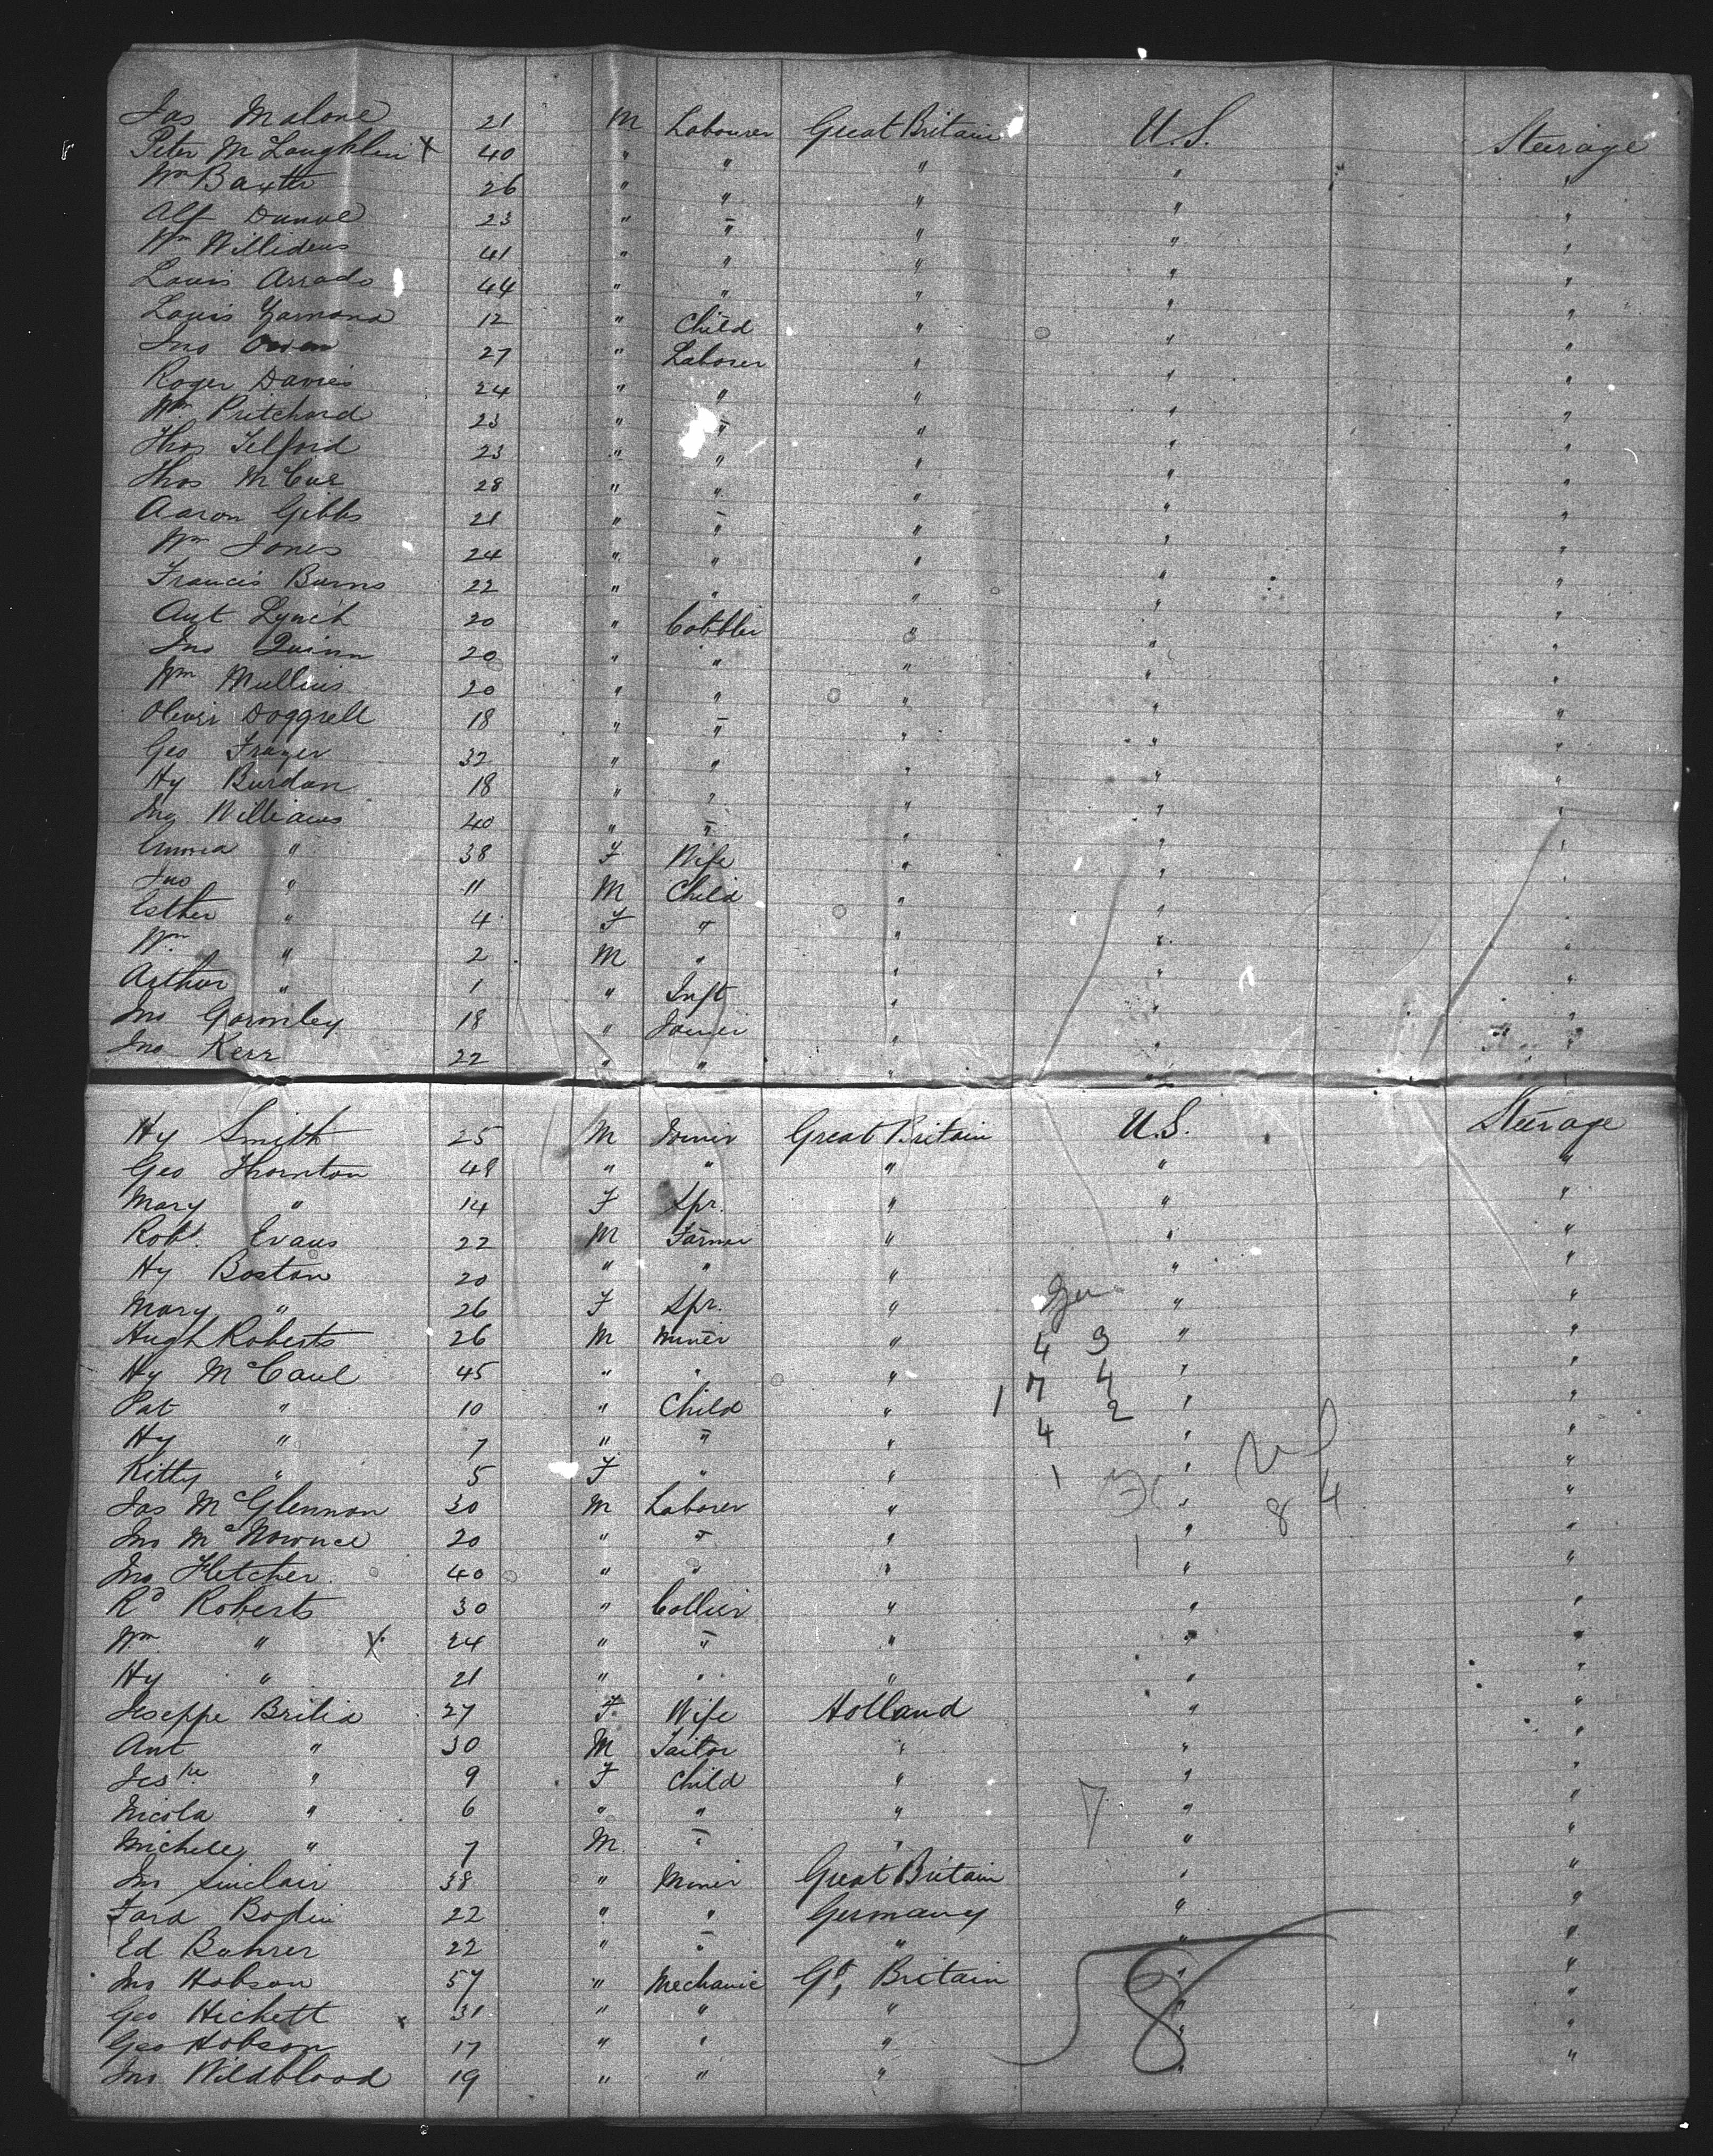 Jas Malone 21 M Labourer Great Britain U.S. Steerage
Peter McLaughlin X 40 " " " " "
Wm Baxter 26 " " " " "
Alf 23 " " " " "
Wm 41 " " " " "
Louis 44 " " " " "
Louis 12 " Child " " "
Jno Owen 27 " Laborer " " "
Roger Davies 24 " " " " "
Wm Pritchard 23 " " " " "
Thos Telford 23 " " " " "
Thos McCue 28 " " " " "
Aaron Gibbs 21 " " " " "
Wm Jones 24 " " " " "
Francis Burns 22 " " " " "
Ant Lynch 20 " Cobbler " " "
Jno Quinn 20 " " " " "
Wm Mullins 20 " " " " "
Oliver Doggrell 18 " " " " "
Geo Frazer 32 " " " " "
Hy Burdan 18 " " " " "
Jno Williams 40 " " " " "
Emma " 38 F Wife " " "
Jno " 11 M Child " " "
Esther " 4 F " " " "
Wm " 2 M " " " "
Arthur " 1 " Inft " " "
Jno Gormley 18 " Joiner " " "
Jno Kerr 22 " " " " "
Hy Smith 25 M Joiner Great Britain U.S. Steerage
Geo Thornton 48 " " " " "
Mary " 14 F Spr. " " "
Robt. Evans 22 M Farmer " " "
Hy Boston 20 " " " " "
Mary " 26 F Spr. " " "
Hugh Roberts 26 M Miner " 4 3 " "
Hy McCaul 45 " " " 7 4 " "
Pat " 10 " Child " 1 2 " "
Hy " 7 " " " 4 " "
Kitty " 5 F " " 1 " "
Jas McGlennon 30 M Laborer " " 8 4 "
Jno 20 " " " 1 " "
Jno Fletcher 40 " " " " "
Rd Roberts 30 " Collier " " "
Wm " X 24 " " " " "
Hy " 21 " " " " "
Jeseppe Brilia 27 F Wife Holland " "
Ant " 30 M Tailor " " "
" 9 F Child " " "
Nicola " 6 " " " 7 " "
Michele " 7 M " " " "
Jno Sinclair 38 " Miner Great Britain " "
22 " " Germany " "
Ed Buhrer 22 " " " " "
Jno Hobson 57 " Mechanic Gt. Britain 58 " "
Geo Hickett x 31 " " " " "
Geo Hobson 17 " " " " "
Jno Wildblood 19 " " " " "